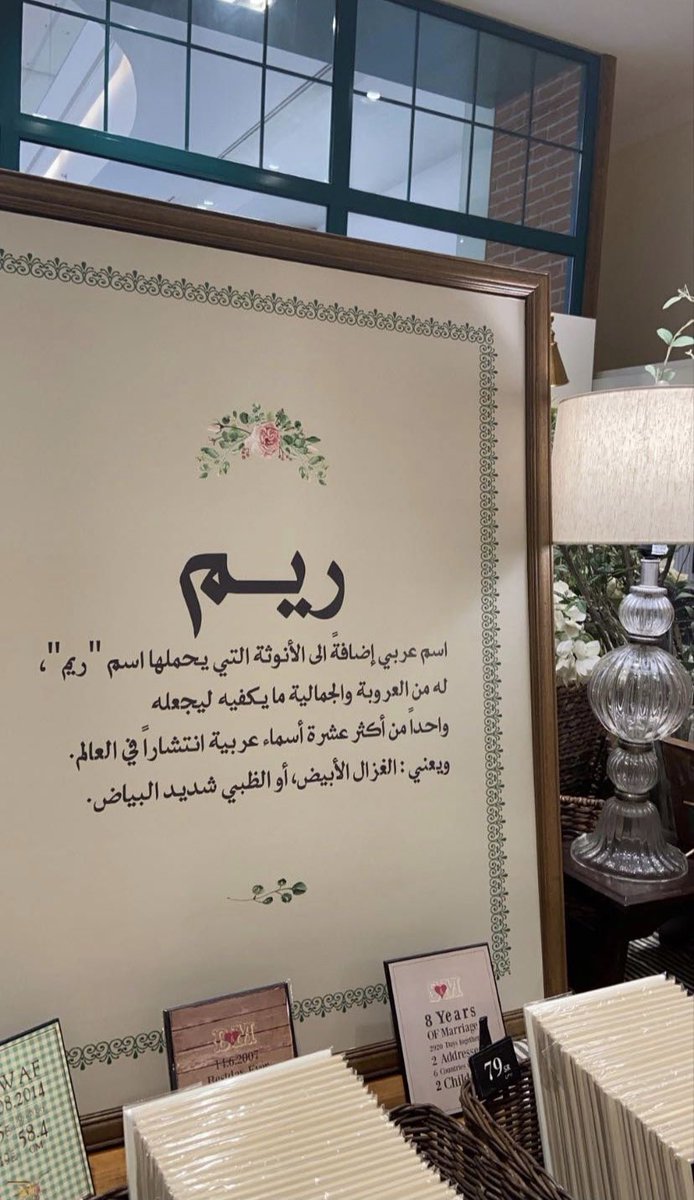 ريم
اسم عربي إضافةً الى الأنوثة التي يحملها اسم "ريم"،
له من العروبة والجمالية ما يكفيه ليجعله
واحداً من أكثر عشرة أسماء عربية انتشاراً في العالم.
ويعني: الغزال الأبيض، أو الظبي شديد البياض.
8 Years
OF Marriage
2920 Days together
2 Addresses
6 Countries
2 Child
79 SR
14.6.2007
WAF
08.2014
58.4